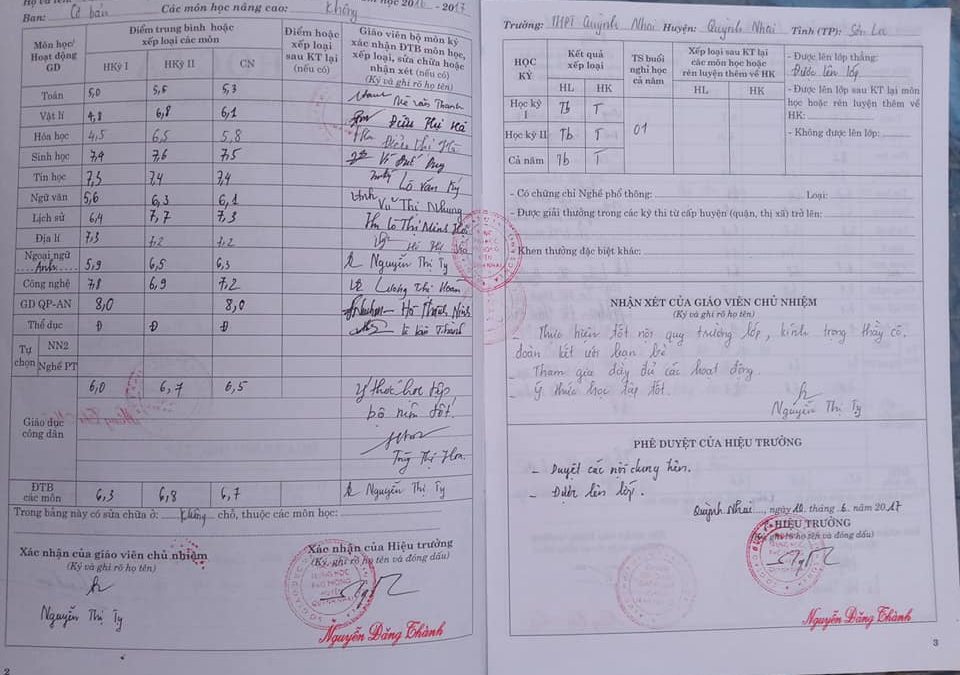 Ban: Cơ bản Các môn học nâng cao: Không năm học 2016 - 2017
Môn học/ Hoạt động GD
Điểm trung bình hoặc xếp loại các môn
HKỳ I HKỳ II CN
Điểm hoặc xếp loại sau KT lại (nếu có)
Giáo viên bộ môn ký xác nhận ĐTB môn học, xếp loại, sửa chữa hoặc nhận xét (nếu có)
(Ký và ghi rõ họ tên)
Toán 5,0 5,5 5,3
Vật lí 4,8 6,8 6,1
Hóa học 4,5 6,5 5,8
Sinh học 7,4 7,6 7,5
Tin học 7,3 7,4 7,4 Lò Văn
Ngữ văn 5,6 6,3 6,1 Thị Nhung
Lịch sử 6,4 7,7 7,3 Lò Thị Minh
Địa lí 7,3 7,2 7,2
Ngoại ngữ Anh 5,9 6,5 6,3 Nguyễn Thị Ty
Công nghệ 7,8 6,9 7,2 Lương Thị Hoàn
GD QP-AN 8,0 8,0
Thể dục Đ Đ Đ
Tự chọn
NN2
Nghề PT
Giáo dục công dân 6,0 6,7 6,5 ý thức học tập
bộ môn tốt.
Tòng Thị Hoa
ĐTB các môn 6,3 6,8 6,7 Nguyễn Thị Ty
Trong bảng này có sửa chữa ở: Không chỗ, thuộc các môn học:
Xác nhận của giáo viên chủ nhiệm
(Ký và ghi rõ họ tên)
Nguyễn Thị Ty
Xác nhận của Hiệu trưởng
(Ký, ghi rõ họ tên và đóng dấu)
Nguyễn Đăng Thành
2
Trường: THPT Quỳnh Nhai Huyện: Quỳnh Nhai Tỉnh (TP): Sơn La
HỌC KỲ
Kết quả xếp loại
HL HK
TS buổi nghỉ học cả năm
Xếp loại sau KT lại các môn học hoặc rèn luyện thêm về HK
HL HK
Học kỳ I Tb T
Học kỳ II Tb T
Cả năm Tb T
01
- Được lên lớp thẳng:
Được lên lớp
- Được lên lớp sau KT lại môn học hoặc rèn luyện thêm về HK:
- Không được lên lớp:
- Có chứng chỉ Nghề phổ thông: Loại:
- Được giải thưởng trong các kỳ thi từ cấp huyện (quận, thị xã) trở lên:
- Khen thưởng đặc biệt khác:
NHẬN XÉT CỦA GIÁO VIÊN CHỦ NHIỆM
(Ký và ghi rõ họ tên)
- Thực hiện tốt nội quy trường lớp, kính trọng thầy cô,
đoàn kết với bạn bè
- Tham gia đầy đủ các hoạt động.
- Ý thức học tập tốt.
Nguyễn Thị Ty
PHÊ DUYỆT CỦA HIỆU TRƯỞNG
- Duyệt các nội dung trên.
- Được lên lớp.
Quỳnh Nhai, ngày 10 tháng 6 năm 2017
HIỆU TRƯỞNG
(Ký, ghi rõ họ tên và đóng dấu)
Nguyễn Đăng Thành
3